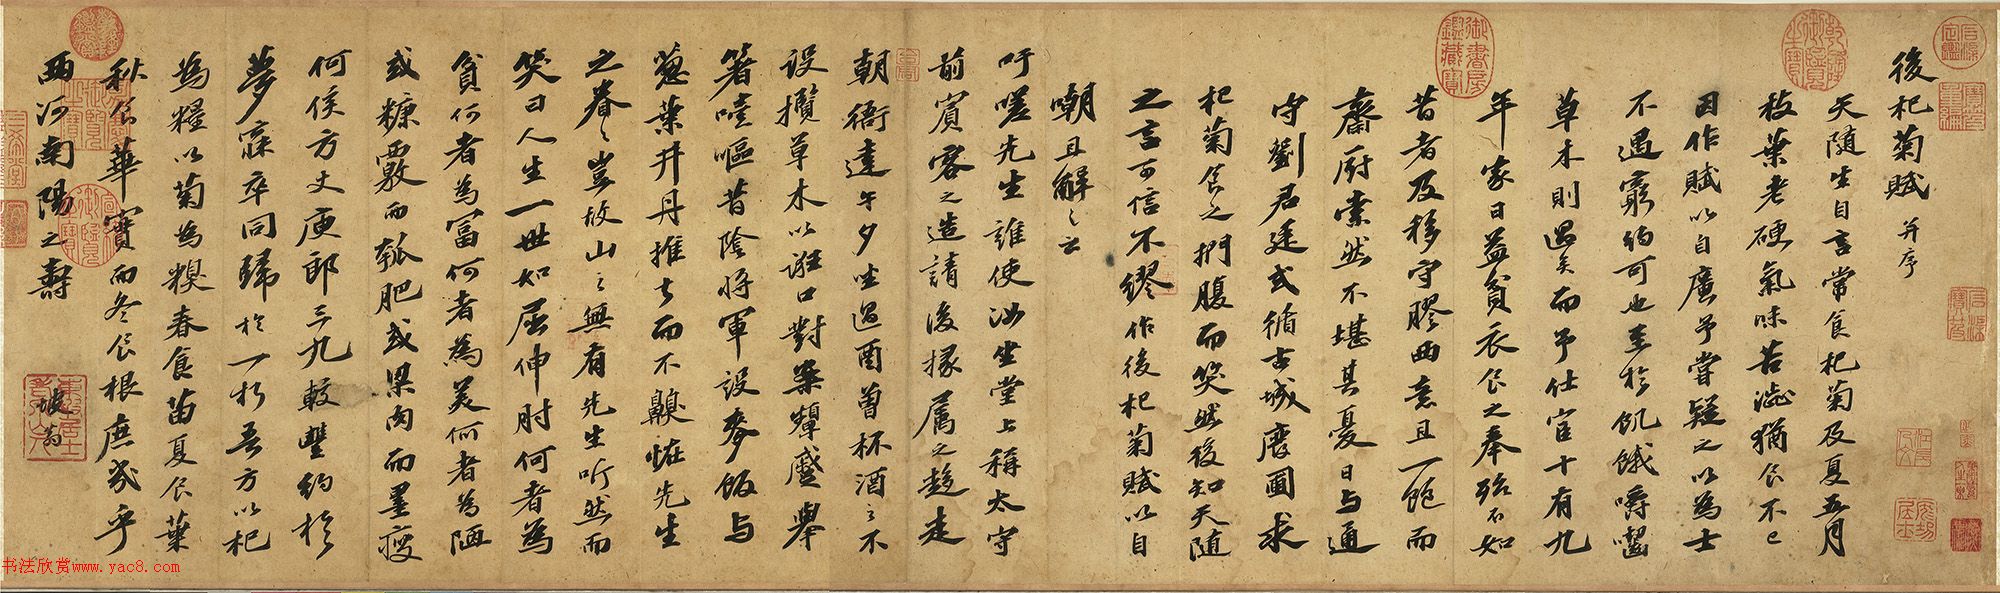 後杞菊賦 并序
天隨生自言常食杞菊及夏五月
枝葉老硬氣味苦澁猶食不已
因作賦以自廣予嘗疑之以為士
不遇窮約可也至於飢餓嚼齧
草木則過矣而予仕宦十有九
年家日益貧衣食之奉殆不如
昔者及移守膠西意且一飽而
齋厨索然不堪其憂日与通
守劉君廷式循古城廢圃求
杞菊食之捫腹而笑然後知天隨
之言可信不繆作後杞菊賦以自
嘲且解之云
吁嗟先生誰使汝坐堂上稱太守
前賓客之造請後掾属之趍走
朝衙達午夕坐過酉曾杯酒之不
设攬草木以誑口對案顰蹙舉
箸噎嘔昔陰將軍設麥飯与
葱葉井丹推去而不齅恠先生
之眷之豈故山之無有先生听然而
笑曰人生一世如屈伸肘何者為
貧何者為富何者為美何者為陋
或糠覈而瓠肥或梁肉而墨瘦
何侯方丈庾郎三九較豐約於
夢寐卒同歸於一朽吾方以杞
為糧以菊為糗春食苗夏食葉
秋食華實而冬食根庶幾乎
西河南陽之壽
坡翁
东坡居士
御書房鑑藏寶
书法欣赏www.yac8.com